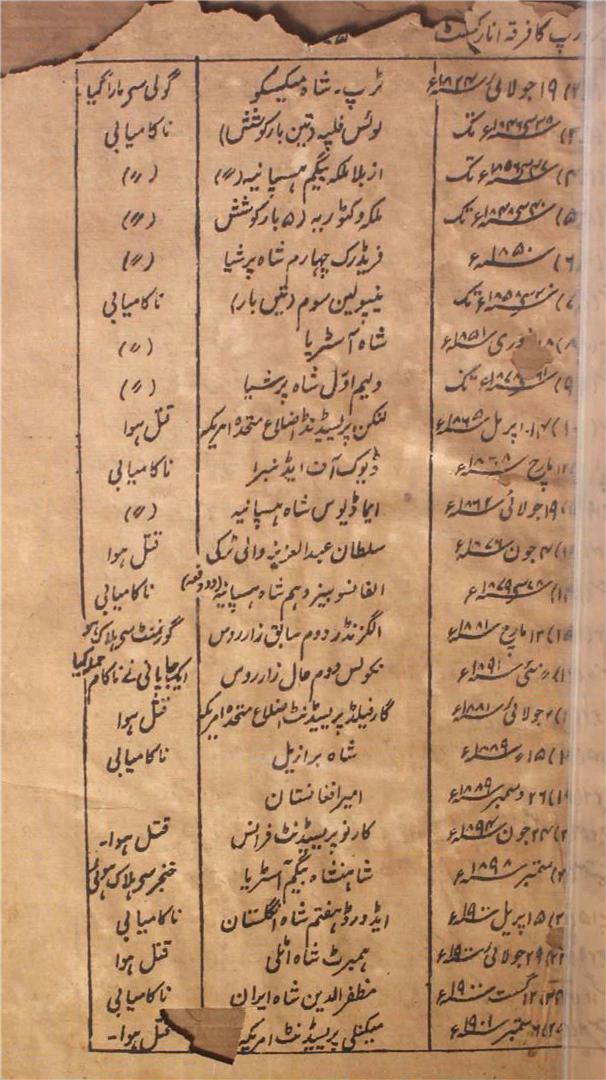 یورپ کا فرقہ انارکسٹ
۱۹ جولائی ۱۸۲۴ء ٹرپ۔ شاہ میکسیکو گولی سے مارا گیا۔
تک لوئس فلپ (تین بار کوشش) ناکامیابی
تک ازبلا ملکہ بیگم ہسپانیہ (〃) (〃)
تک ملکہ وکٹوریہ (۵ بار کوشش) (〃)
۱۸۵۰ء فریڈرک چہارم شاہ پرشیا (〃)
تک نیپولین سوم (تین بار) ناکامیابی
۱۸ فروری ۱۸۵۱ء شاہ آسٹریا (〃)
تک ولیم اوّل شاہ پرشیا (〃)
۱۴ اپریل ۱۸۶۵ء لنکن پریسیڈنٹ اضلاع متحدہ امریکہ قتل ہوا
۱۲ مارچ ۱۸۶۸ء ڈیوک آف ایڈنبرا ناکامیابی
۱۹ جولائی ۱۸۶۲ء ایماڈیوس شاہ ہسپانیہ (〃)
۴ جون ۱۸۷۶ء سلطان عبدالعزیز والی ٹرکی قتل ہوا
الفانسو سیزدہم شاہ ہسپانیہ (دو دفعہ) ناکامیابی
۱۳ مارچ ۱۸۸۱ء الگزنڈر دوم سابق زار روس سے ہلاک ہو
مئی ۱۸۹۱ء نکولس دوم حال زار روس ایک جاپانی نے ناکام حملہ کیا
۲ جولائی ۱۸۸۱ء گارفیلڈ پریسیڈنٹ اضلاع متحدہ امریکہ قتل ہوا
۱۵ ۱۸۸۹ء شاہ برازیل ناکامیابی
۲۶ دسمبر ۱۸۸۹ء امیر افغانستان
۲۴ جون ۱۸۹۴ء کارنو پریسیڈنٹ فرانس قتل ہوا۔
ستمبر ۱۸۹۸ء شاہنشاہ بیگم آسٹریا خنجر سے ہلاک ہوئی
۱۵ اپریل ۱۹۰۰ء ایڈورڈ ہفتم شاہ انگلستان ناکامیابی
۲۹ جولائی ۱۹۰۰ء ہمبرٹ شاہ اٹلی قتل ہوا
۲ اگست ۱۹۰۰ء مظفر الدین شاہ ایران ناکامیابی
۶ ستمبر ۱۹۰۱ء میکنلی پریسیڈنٹ امریکہ قتل ہوا۔